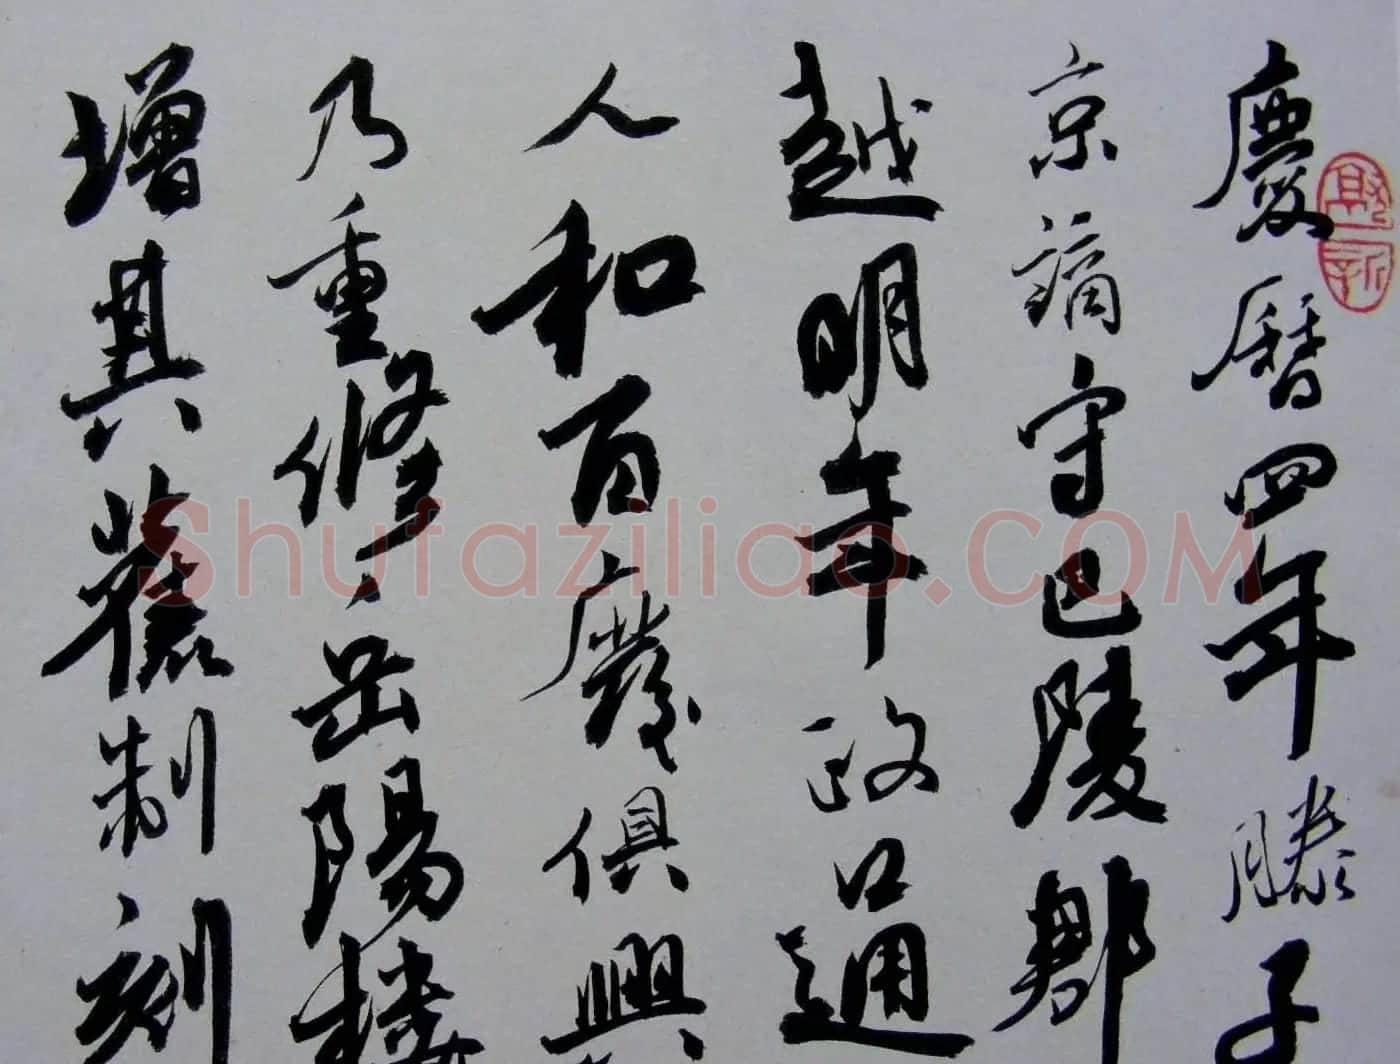 慶曆四年滕子
京謫守巴陵郡
越明年政通
人和百廢俱興
乃重修岳陽樓
增其舊制刻
Shufaziliao.COM